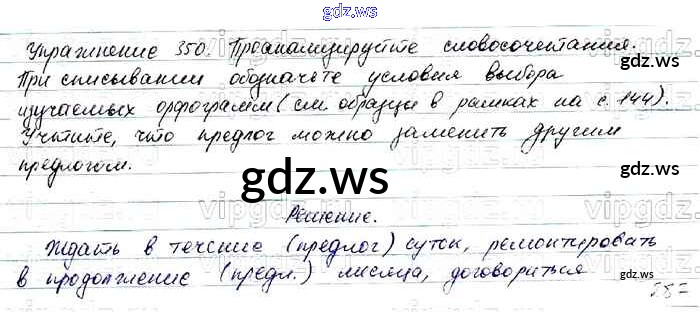 gdz.ws
Упражнение 350. Проанализируйте словосочетания.
При списывании обозначьте условия выбора
gdz.ws
изучаемых орфограмм (см. образцы в рамках на с. 144).
Учтите, что предлог можно заменить другим
предлогом.
gdz.ws
gdz.ws
Решение.
Ждать в течение (предлог) суток, ремонтировать
в продолжение (предл.) месяца, договориться
gdz.ws
287